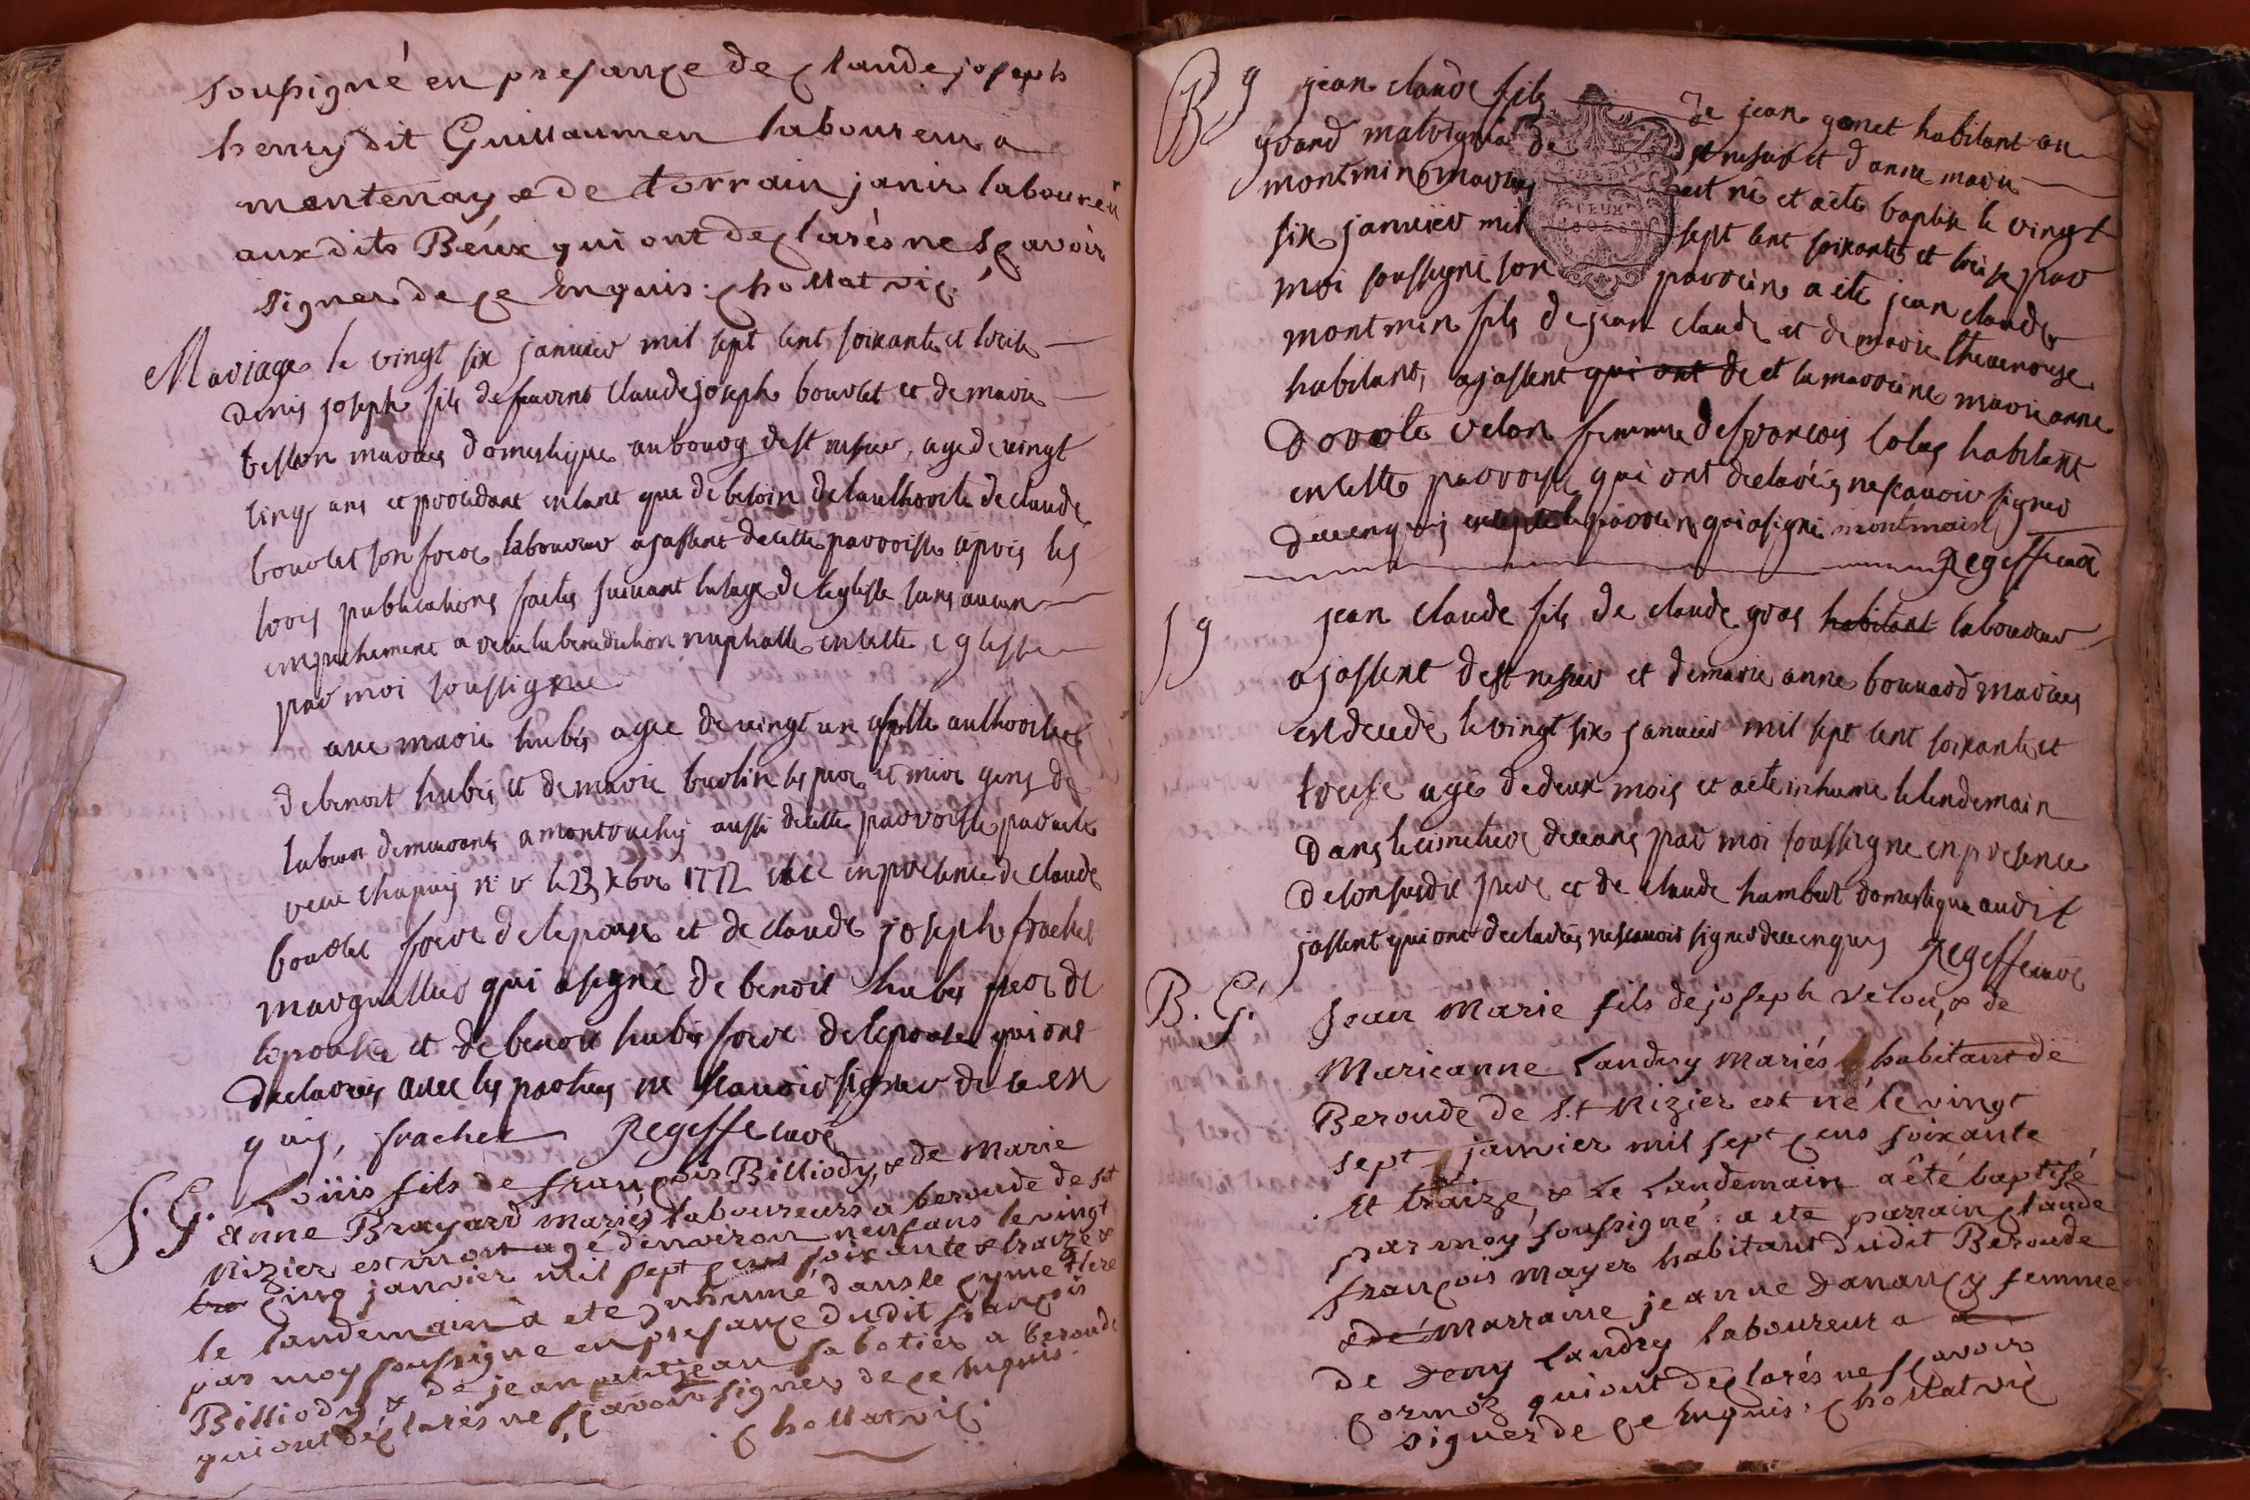 soussigné en presançe de çlaude joseph
henry dit Guillaumen laboureur a
mentenay & de torrain janin laboureur
aux dits Béux qui ont deçlarés ne sçavoir
signer de çe Enquis. çhollat viç.
Mariage le vingt six janvier mil sept cent soixante et treize
denis joseph fils de claude joseph bourlet et de marie
teston mariés domestique au bourg de st nisier, age de vingt
cinq ans et procedant entant que de besoin de lauthorite de claude
bourlet son frere laboureur a jassent de cette parroisse apres les
trois publications faites suivant lusage de leglise sans aucun
empechement a recu la benediction nuptialle en cette eglisse
par moi soussigné
avec marie hubis agee de vingt un authorisee
de benoit hubis et de marie ses pere et mere gens de
labeur demeurants a montouchy aussi de cette parroisse par acte
recu chapuis le 23 xbre 1772 en presence de claude
bourlet frere de lepoux et de claude joseph frachet
marguillier qui a signé de benoit hubis pere de
lepouse et de benoit hubis frere de lepouse qui ont
declarés avec les parties ne scavoir signer de ce en
quis, frachet Regeffe curé
S. G. Loüis fils de françois Billiody, & de Marie
Anne Brayard mariés laboureurs a beroude de st
Nizier est mort agé denviron neuf ans le vingt
çinq janvier mil sept çens soixante & traize &
le landemain a ete Inhumé dans le çymetiere
par moy soussigné en presançe dudit françois
Billiody & de jean petitjean sabotier a beroude
qui ont deçlarés ne sçavoir signer de çe Enquis.
çhollat viç.
B g jean claude fils de jean genet habitant au
grand malvigna de st nisier et d anne marie
montmin mariés est né et a ete baptise le vingt
six janvier mil sept cent soixante et treize par
moi soussigné son parrein a ete jean claude
montmin fils de jean claude et de marie thevenouse
habitants a jassent qui ont de et la marreine marie anne
dorote velon femme de françois colas habitant
en cette parroisse qui ont declarés ne scavoir signer
de ce enquis le parrein qui a signé montmain
Regeffe curé
S g jean claude fils de claude gras habitant laboureur
a jassent de st nisier et de marie anne bouvard mariés
est decedé le vingt six janvier mil sept cent soixante et
treise agé de deux mois et a ete inhumé le lendemain
dans le cimetiere de ceans par moi soussigné en presence
de son susdit pere et de claude humbert domestique audit
jassent qui ont declarés ne scavoir signer de ce enquis Regeffe curé
B. G. Jean Marie fils de joseph Velon, & de
Marieanne Landry Mariés habitant de
Beroude de St Nizier est né le vingt
sept janvier mil sept çens soixante
et traize, & Le Landemain a été baptisé
par moy soussigné. a ete parrain çlaude
françois Mayer habitant dudit Beroude
& de Marraine jeanne Danançy femme
de Deny Landry laboureur a
çormoz qui ont deçlarés ne sçavoir
signer de çe Enquis. çhollat viç